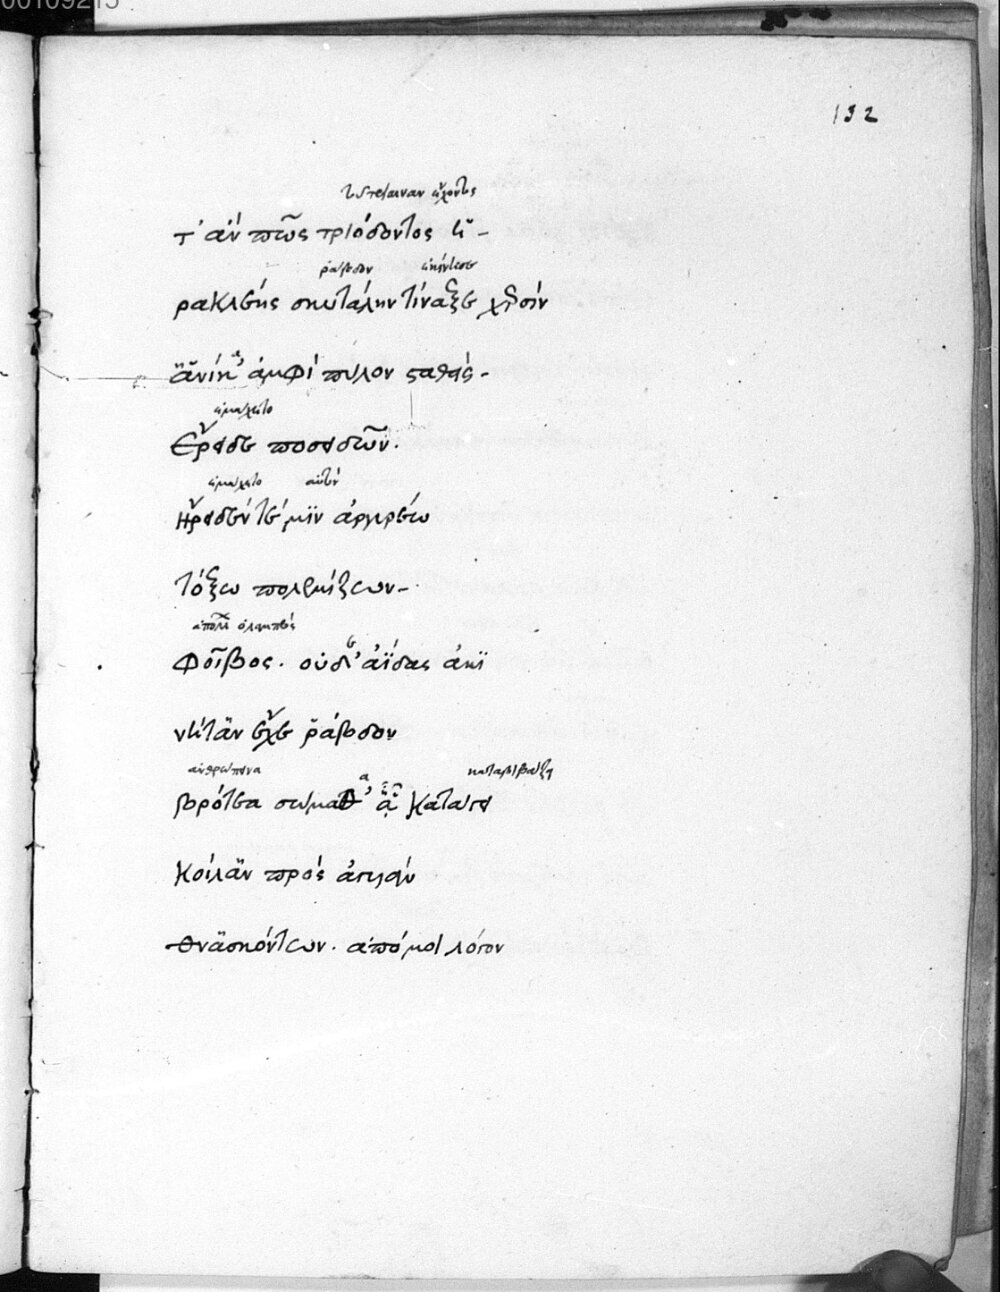 00109215
132
τρίαιναν ἔχοντος
τ' ἀν πῶς τριόδοντος ἡ-
ῥάβδον ἐκίνησε
ρακλέης σκυτάλην τίναξε χερσίν
ἁνίκ' ἀμφὶ πύλον σταθεὶς-
ἐμάχετο
ἔρειδε ποσειδῶν.
ἐμάχετο αὐτὸν
ἤρειδέν τέ μιν ἀργυρέω
τόξω πολεμίζων-
Φοῖβος. οὐδ' ἀΐδας ἀκι
νήταν ἔχε ῥάβδον
ἀνθρώπινα καταβιβάζει
βρότεα σώμαθ' ἇ κατάγει
κοίλαν πρὸς ἀγυιὰν
θνασκόντων. ἀπό μοι λόγον